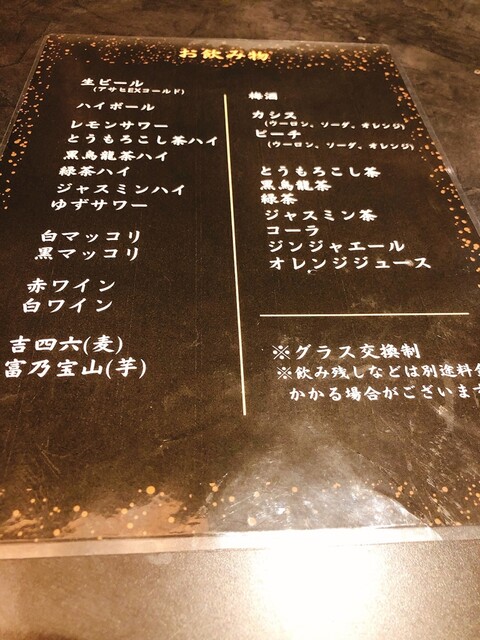 お飲み物
生ビール
(アサヒEXコールド)
ハイボール
レモンサワー
とうもろこし茶ハイ
黒烏龍茶ハイ
緑茶ハイ
ジャスミンハイ
ゆずサワー
白マッコリ
黒マッコリ
赤ワイン
白ワイン
吉四六(麦)
富乃宝山(芋)
梅酒
カシス
(ウーロン、ソーダ、オレンジ)
ピーチ
(ウーロン、ソーダ、オレンジ)
とうもろこし茶
黒烏龍茶
緑茶
ジャスミン茶
コーラ
ジンジャエール
オレンジジュース
※グラス交換制
※飲み残しなどは別途料金
かかる場合がございます